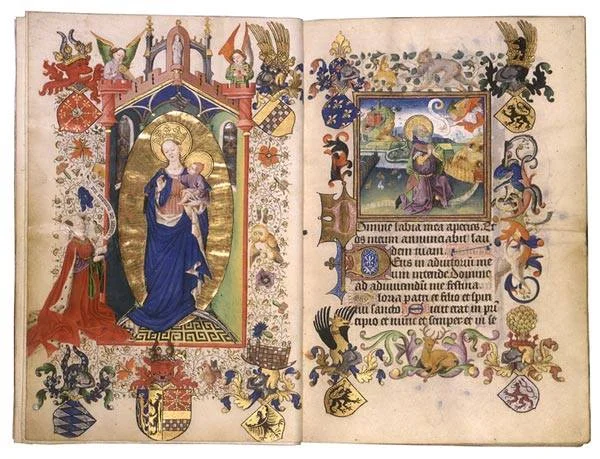 Domine labia mea aperies. Et
os meum annunciabit lau
dem tuam.
Deus in adiutoriū me
um intende Domine
ad adiuvandū me festina
Gloria patri et filio et spiri
tui sancto Sicut erat in prī
cipio et nunc et semper et in se